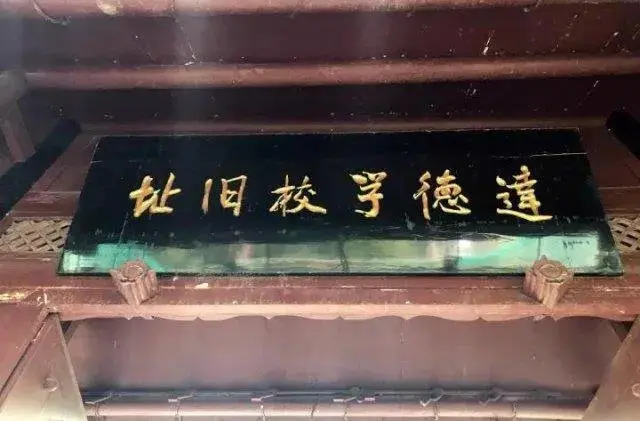 達徳学校旧址